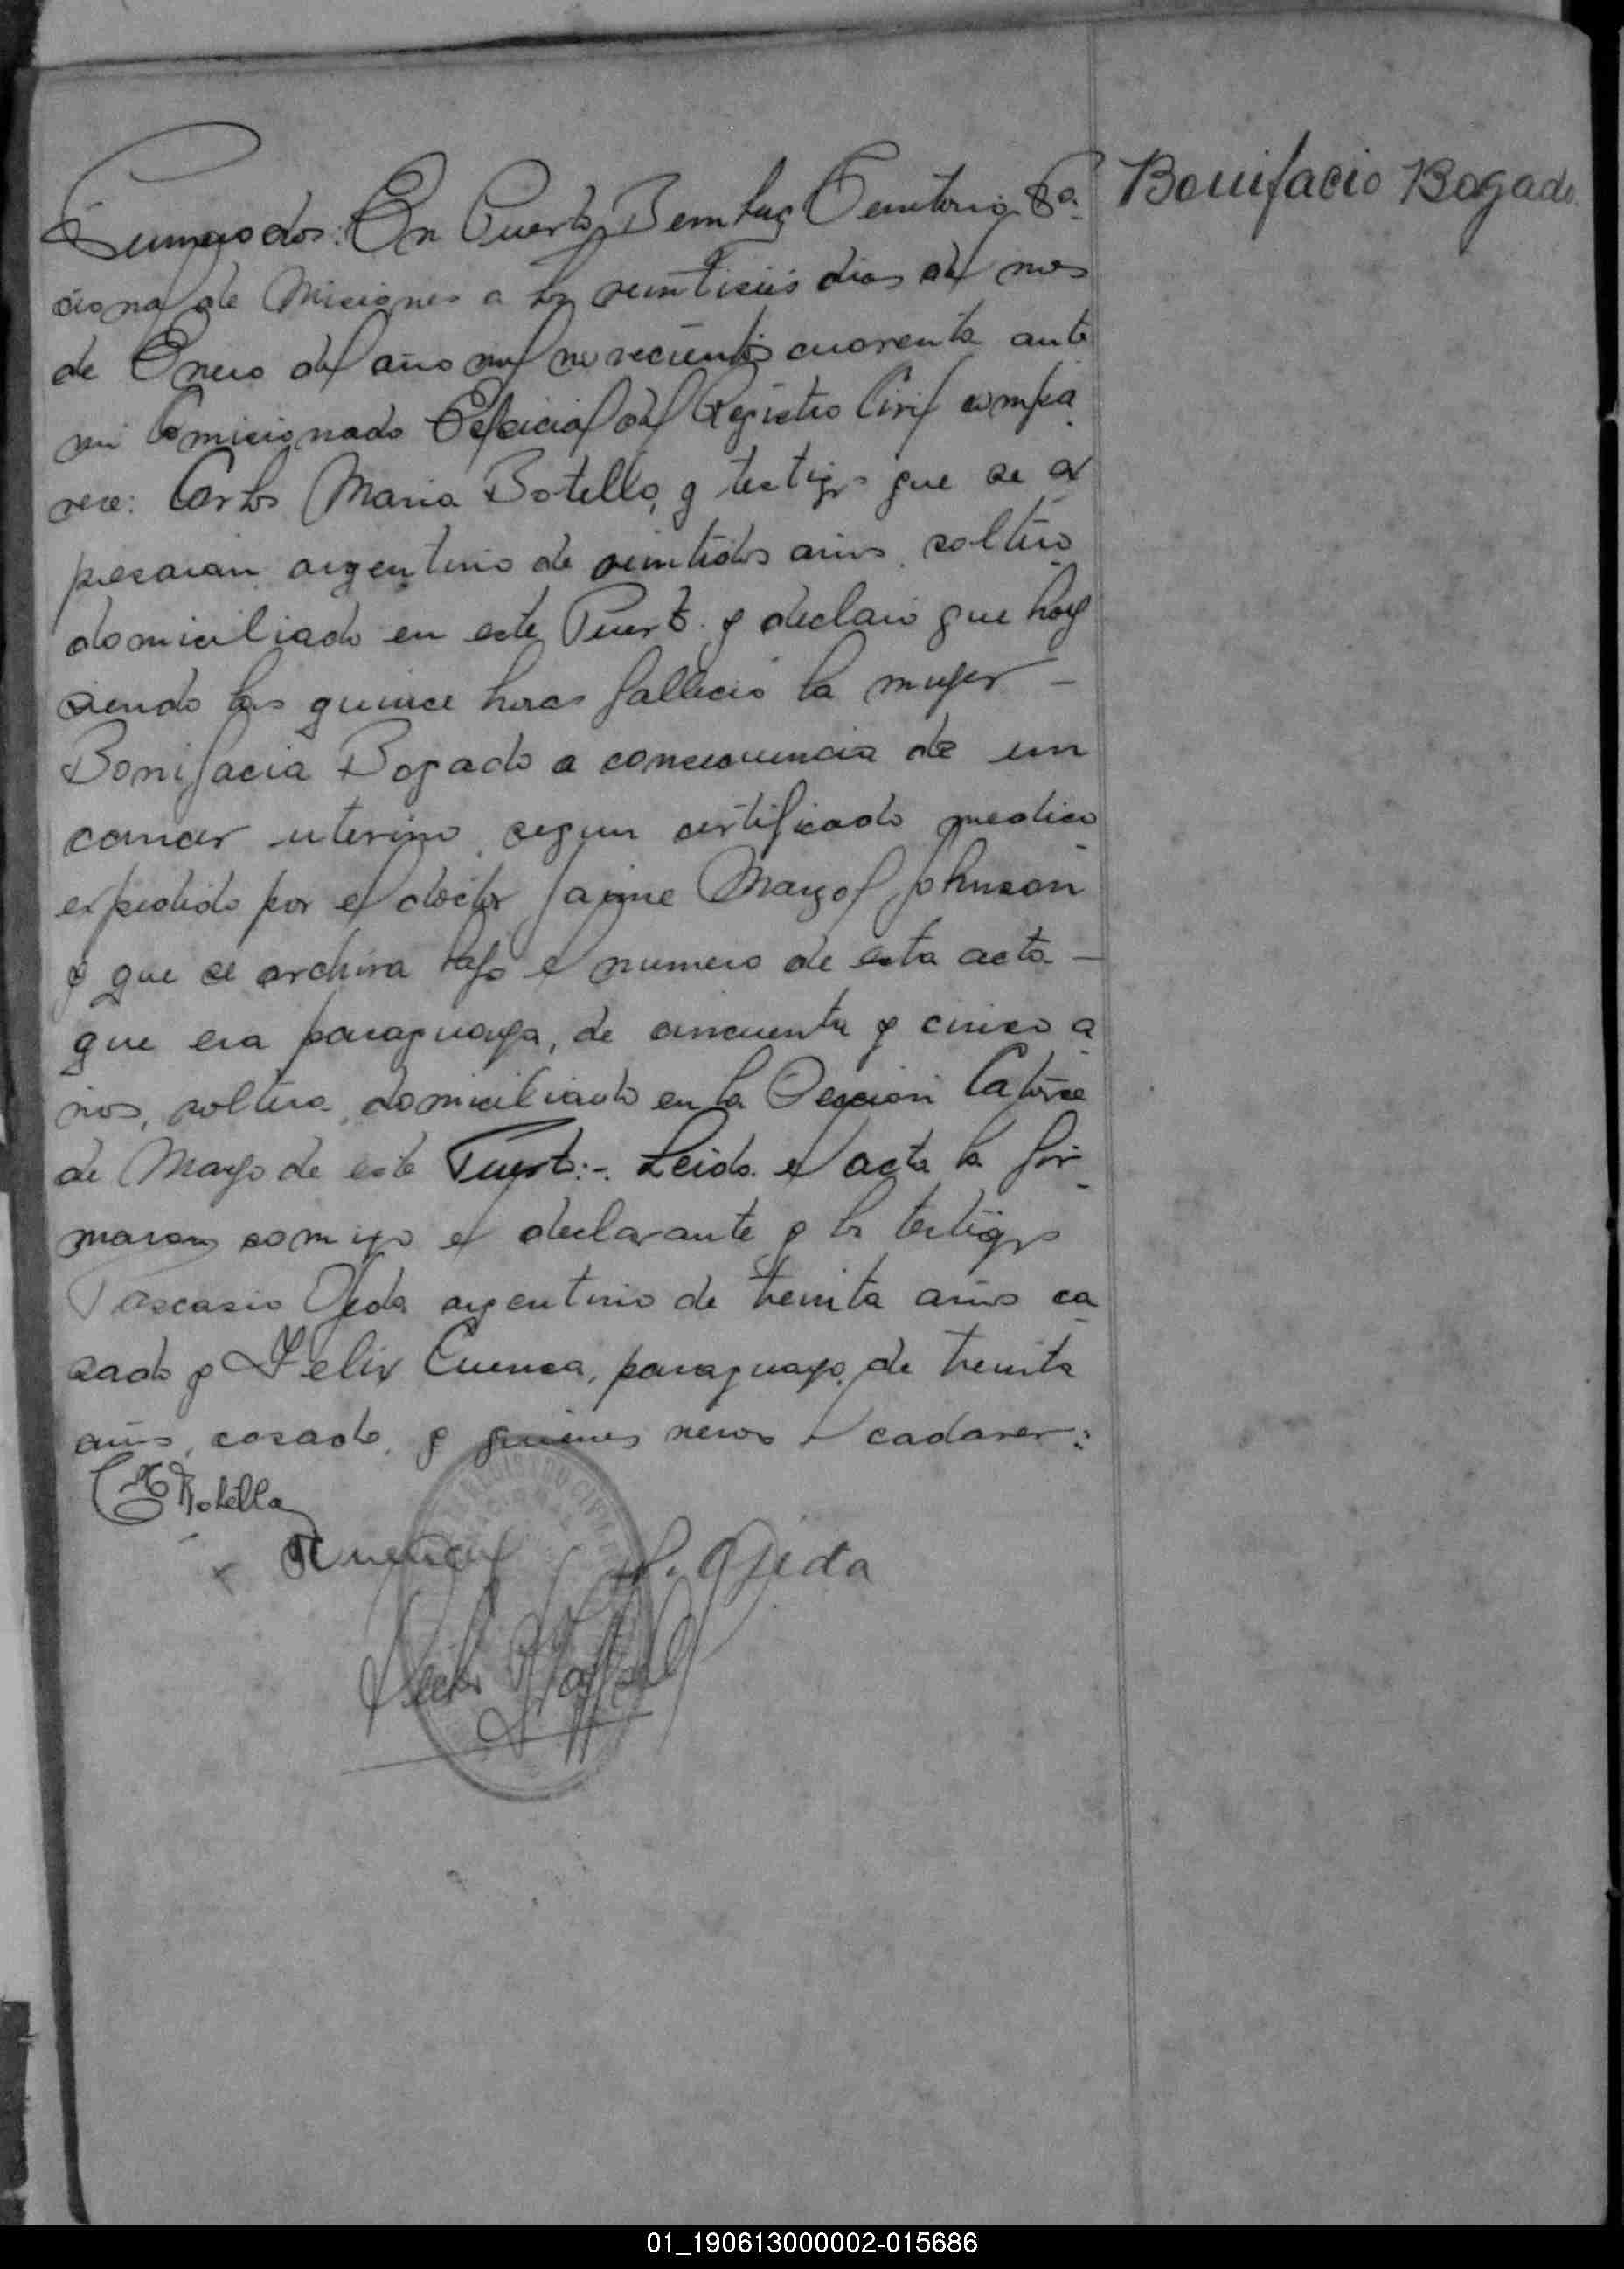 Numero dos: En Puerto Bemberg Territorio Na
Bonifacio Bogado
cional de Misiones a los veintiseis dias del mes
de Enero del año mil novecientos cuarenta ante
mi Comicionado Especial del Registro Civil compa
rece: Carlos Maria Botello, y testigos que se ex
presaran argentino de veintidos años, soltero
domiciliado en este Puerto y declaro que hoy
siendo las quince horas fallecio la mujer –
Bonifacia Bogado a consecuencia de un
cancer uterino, segun certificado medico
expedido por el doctor Jaime Johnson
y que se archiva bajo el numero de esta acta –
que era paraguaya, de cincuenta y cinco a
ños, soltera domiciliado en la Seccion Catorce
de Mayo de este Puerto:-. Leida el acta la fir
maron conmigo el declarante y los testigos
Pascasio Ojeda argentino de treinta años ca
sado y Felix Cuenca, paraguayo, de treinta
años, casado, y quienes vieron el cadaver:
Botello
Cuenca
P. Ojeda
REGISTRO CIVIL
01_190613000002-015686